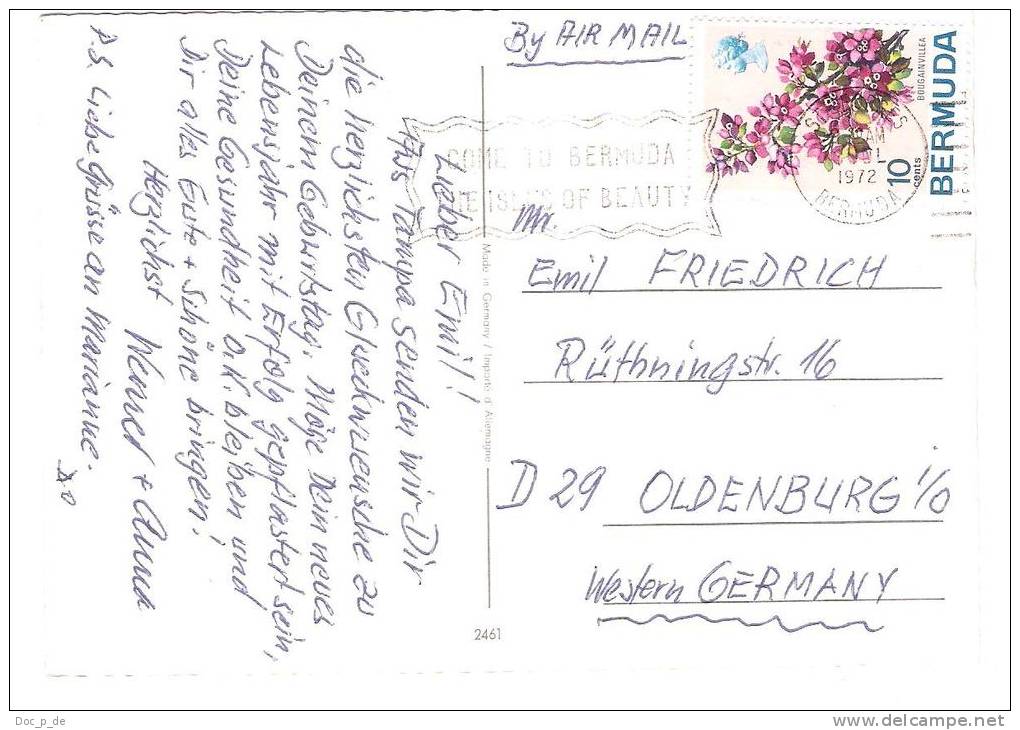 Lieber Emil!
Aus Tampa senden wir Dir
die herzlichsten Glueckwuensche zu
Deinem Geburtstag. Möge Dein neues
Lebensjahr mit Erfolg gepflastert sein,
Deine Gesundheit o.K. bleiben und
Dir alles Gute + Schöne bringen!
Herzlichst Werner + Anna
P.S. Liebe Grüsse an Marianne.
By AIR MAIL
BOUGAINVILLEA
BERMUDA
10 cents
COME TO BERMUDA
THE ISLES OF BEAUTY
AM
1972
BERMUDA
Mr.
Emil FRIEDRICH
Rüthningstr. 16
D 29 OLDENBURG i/O
Western GERMANY
Made in Germany / Importé d'Allemagne
2461
Doc_p_de
www.delcampe.net